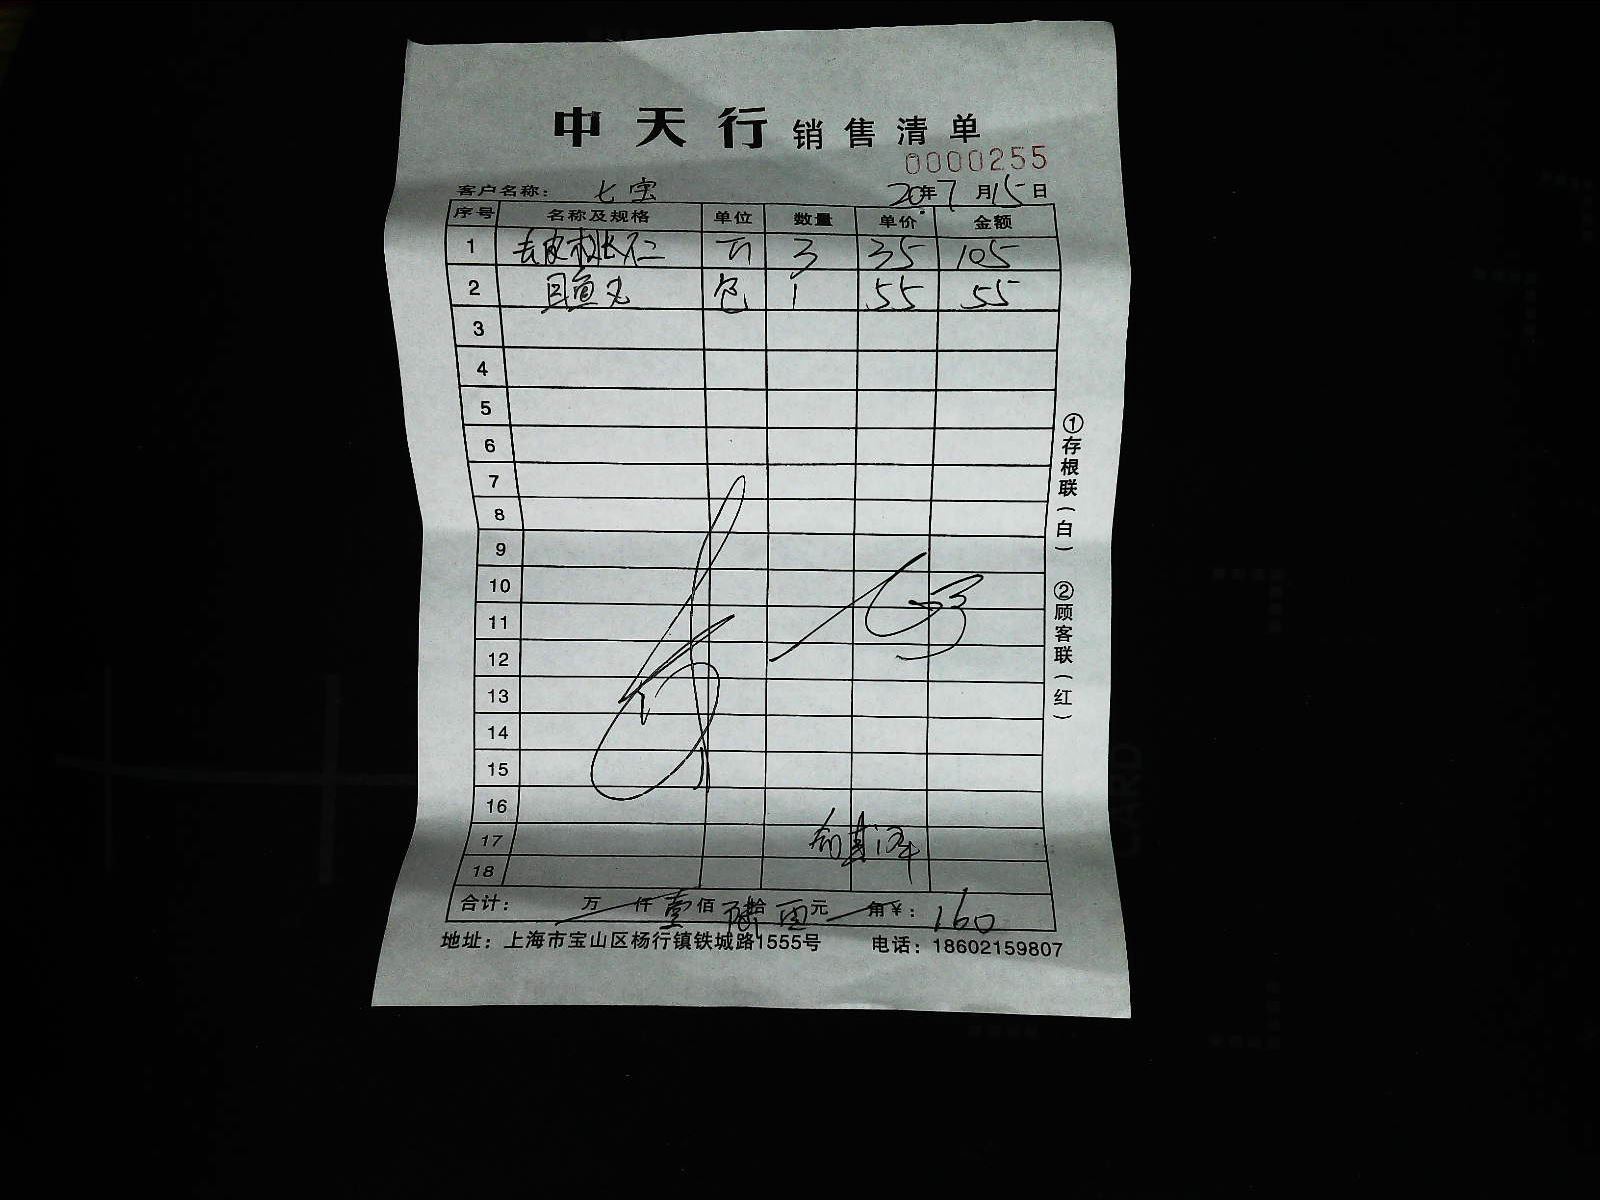 中天行 销售清单
0000255
客户名称： 七宝 20年7月15日
序号 名称及规格 单位 数量 单价 金额
1 去皮核桃仁 斤 3 35 105
2 目鱼丸 包 1 55 55
3
4
5
6
7
8
9
10
11
12
13
14
15
16
17
18
合计： 万 仟 壹佰 陆拾 元 角 ¥： 160
地址：上海市宝山区杨行镇铁城路1555号 电话：18602159807
①存根联（白） ②顾客联（红）